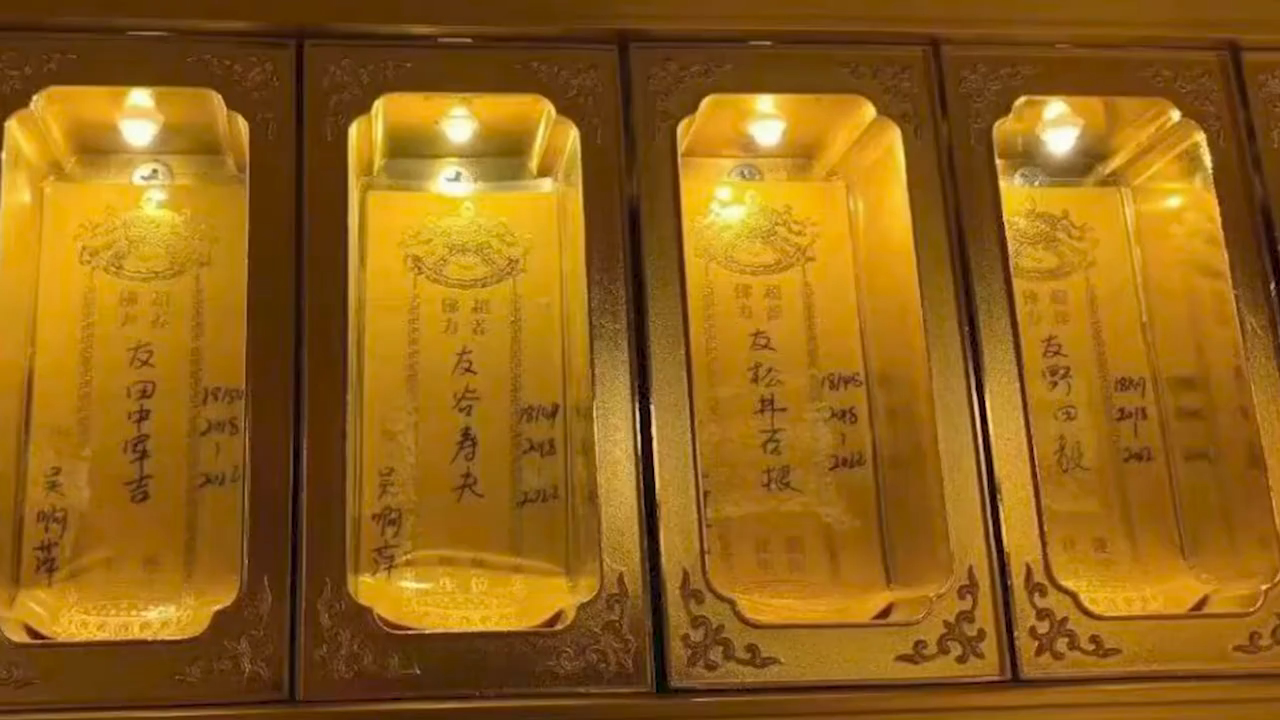 佛力
超荐
友田中军吉
2018
|
2022
吴啊萍
佛力
超荐
友谷寿夫
18/49
2018
|
2022
吴啊萍
佛力
超荐
友松井石根
18/48
2018
|
2022
佛力
超荐
友野田毅
2018
|
2022